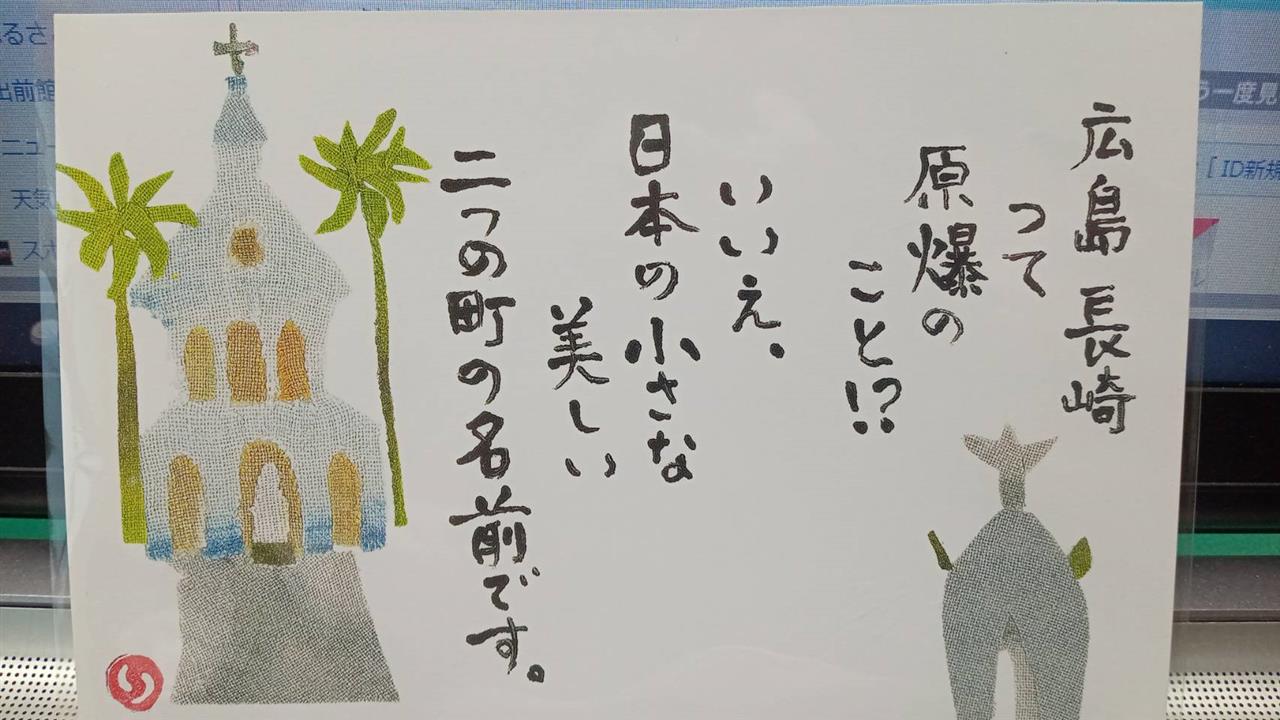 広島 長崎
って
原爆の
こと!?
いいえ、
日本の小さな
美しい
二つの町の名前です。
出前館
ニュー
天気
スポ
う一度見
[ ID新規